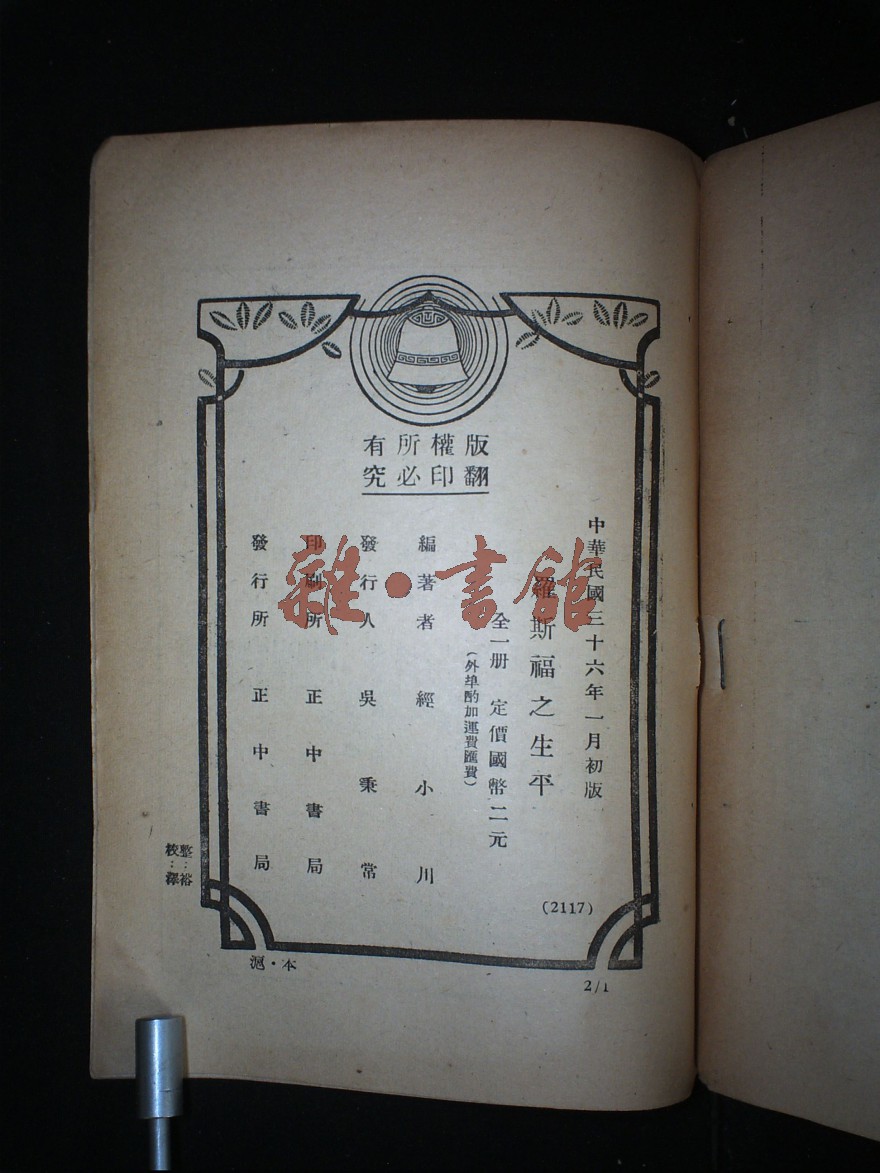 版權所有
翻印必究
中華民國三十六年一月初版
羅斯福之生平
全一册 定價國幣二元
(外埠酌加運費匯費)
編著者 經小川
發行人 吳秉常
印刷所 正中書局
發行所 正中書局
(2117)
整:裕
校:澤
滬·本
2/1
雜·書館